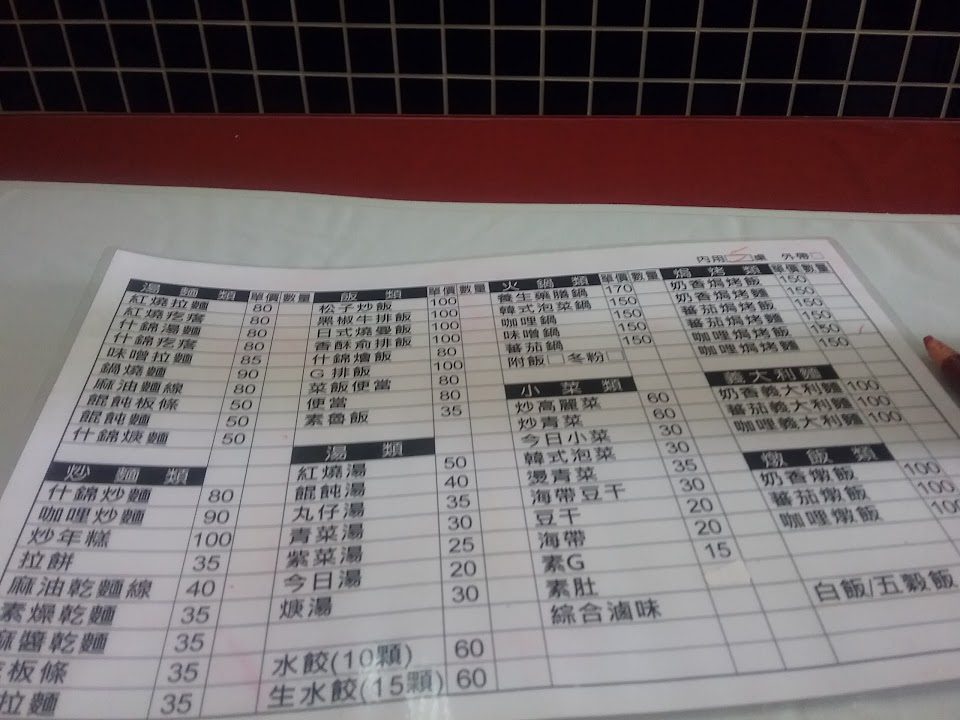 內用 5 桌 外帶
湯麵類 單價 數量
紅燒拉麵 80
紅燒疙瘩 80
什錦湯麵 80
什錦疙瘩 80
味噌拉麵 85
鍋燒麵 90
麻油麵線 80
餛飩板條 50
餛飩麵 50
什錦焿麵 50
炒麵類
什錦炒麵 80
咖哩炒麵 90
炒年糕 100
拉餅 35
麻油乾麵線 40
素燥乾麵 35
麻醬乾麵 35
板條 35
拉麵 35
飯類 單價 數量
松子炒飯 100
黑椒牛排飯 100
日式燒曼飯 100
香酥俞排飯 100
什錦燴飯 80
G排飯 100
菜飯便當 80
便當 80
素魯飯 35
湯類
紅燒湯 50
餛飩湯 40
丸仔湯 35
青菜湯 30
紫菜湯 25
今日湯 20
焿湯 30
水餃(10顆) 60
生水餃(15顆) 60
火鍋類 單價 數量
養生藥膳鍋 170
韓式泡菜鍋 150
咖哩鍋 150
味噌鍋 150
蕃茄鍋 150
附飯□冬粉□
小菜類
炒高麗菜 60
炒青菜 60
今日小菜 30
韓式泡菜 30
漫青菜 35
海帶豆干 30
豆干 20
海帶 20
素G 15
素肚
綜合滷味
焗烤類 單價 數量
奶香焗烤飯 150
奶香焗烤麵 150
蕃茄焗烤飯 150
蕃茄焗烤麵 150
咖哩焗烤飯 150
咖哩焗烤麵 150
義大利麵
奶香義大利麵 100
蕃茄義大利麵 100
咖哩義大利麵 100
燉飯類
奶香燉飯 100
蕃茄燉飯 100
咖哩燉飯 100
白飯/五穀飯